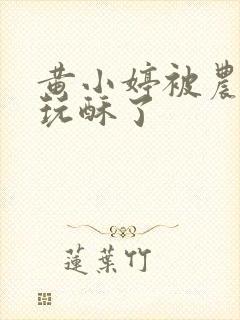 黄小婷被農
玩酥了
蓮葉竹